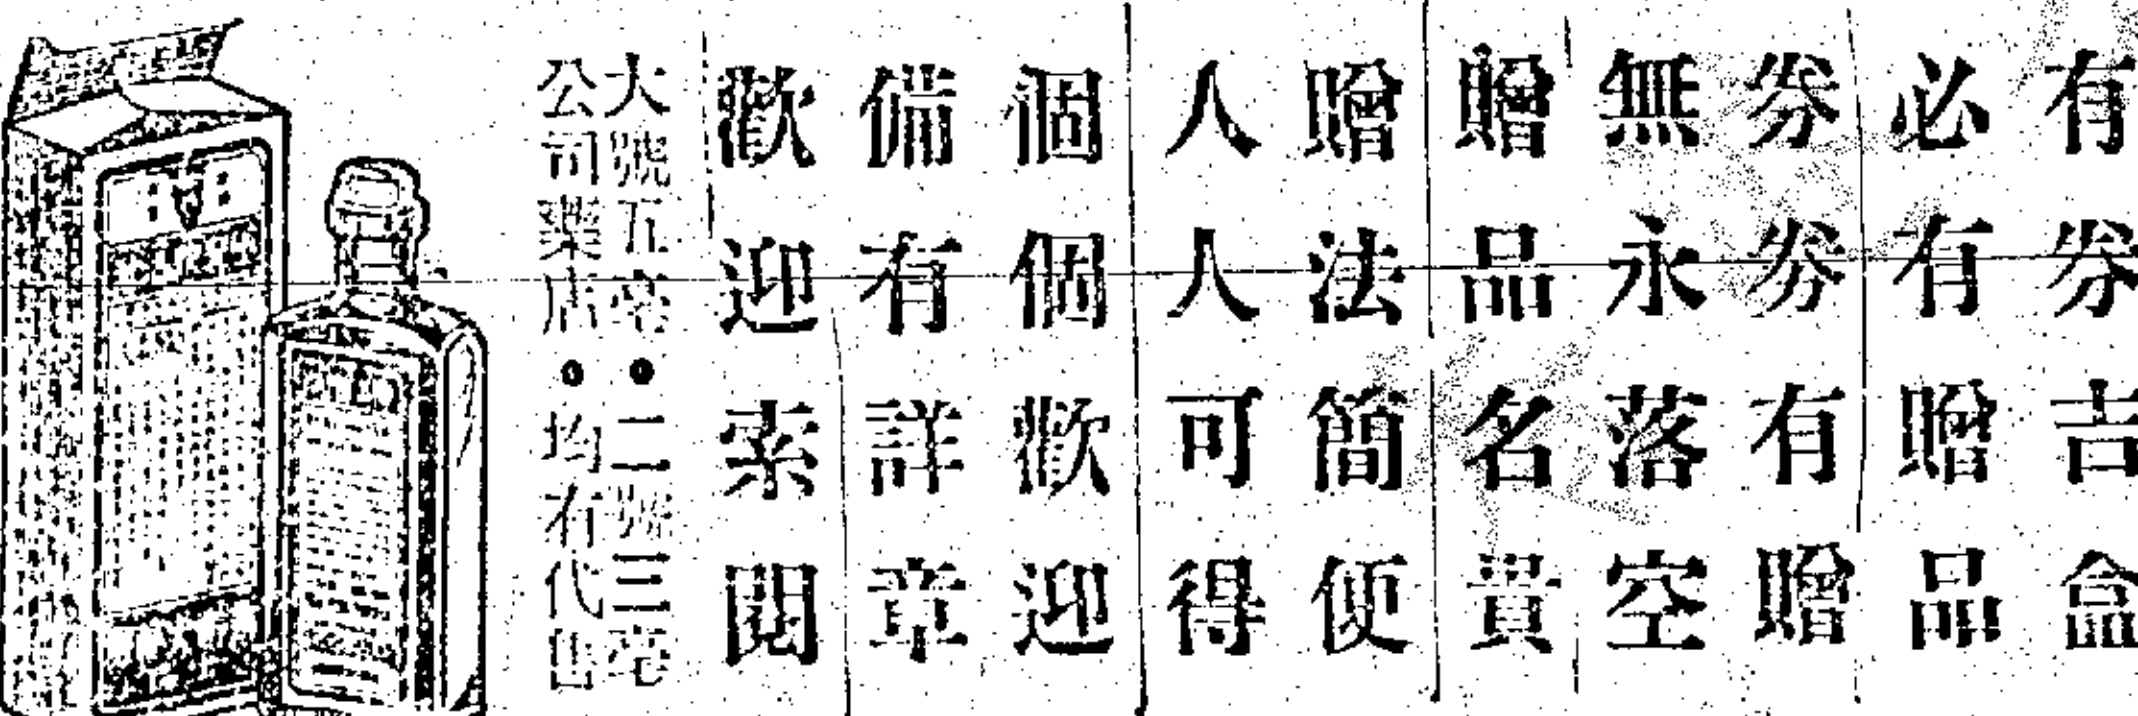 有券吉盒
必有贈品
券券有贈
無永落空
贈品名貴
贈法簡便
人人可得
個個歡迎
備有詳章
歡迎索閱
大號五毫•二號三毫
公司藥店•均有代售